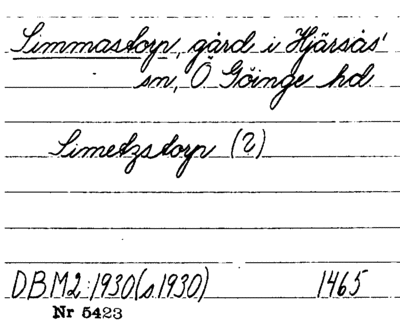 Simmastorp, gård i Hjärsås'
sn, Ö Göinge hd
Simetzstorp (?)
DBM2:1930(s 1930) 1465
Nr 5423